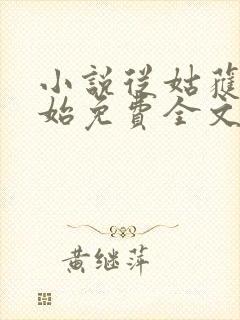 小説從姑獲
始免費全文
黄继萍